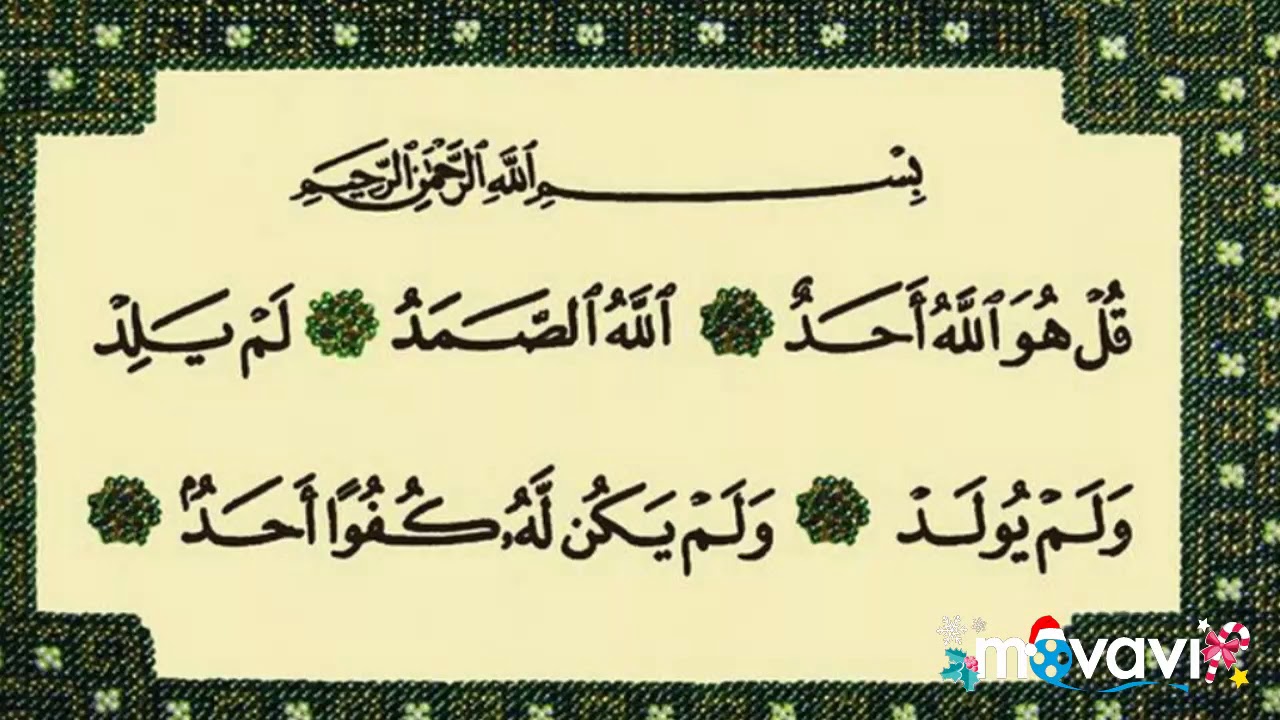 بِسْمِ ٱللَّهِ ٱلرَّحْمَٰنِ ٱلرَّحِيمِ
قُلْ هُوَ ٱللَّهُ أَحَدٌ ٱللَّهُ ٱلصَّمَدُ لَمْ يَلِدْ
وَلَمْ يُولَدْ وَلَمْ يَكُن لَّهُۥ كُفُوًا أَحَدٌۢ
movavi